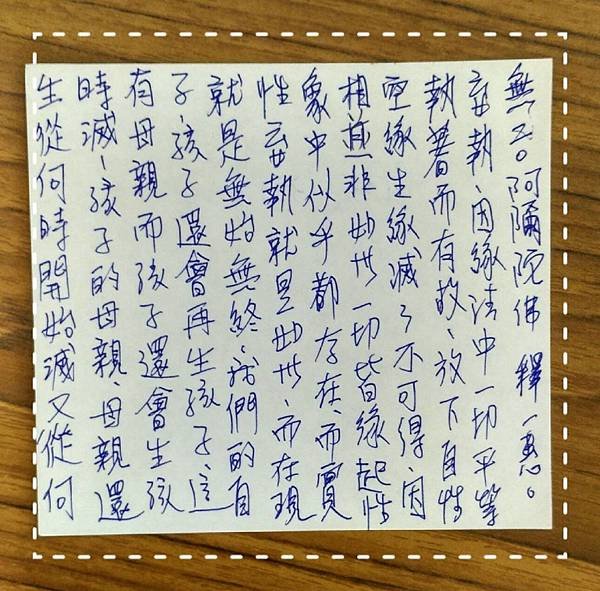 生從何時開始滅又從何
時滅、孩子的母親、母親還
有母親而孩子還會生孩
子、孩子還會再生孩子這
就是無始無終、我們的自
性無執就是如此、而在現
象中似乎都存在、而實
相非如此一切皆緣起性
空緣生緣滅了不可得、因
執著而有故、放下自性
無執、因緣法中一切平等
無二。阿彌陀佛 釋一惠。